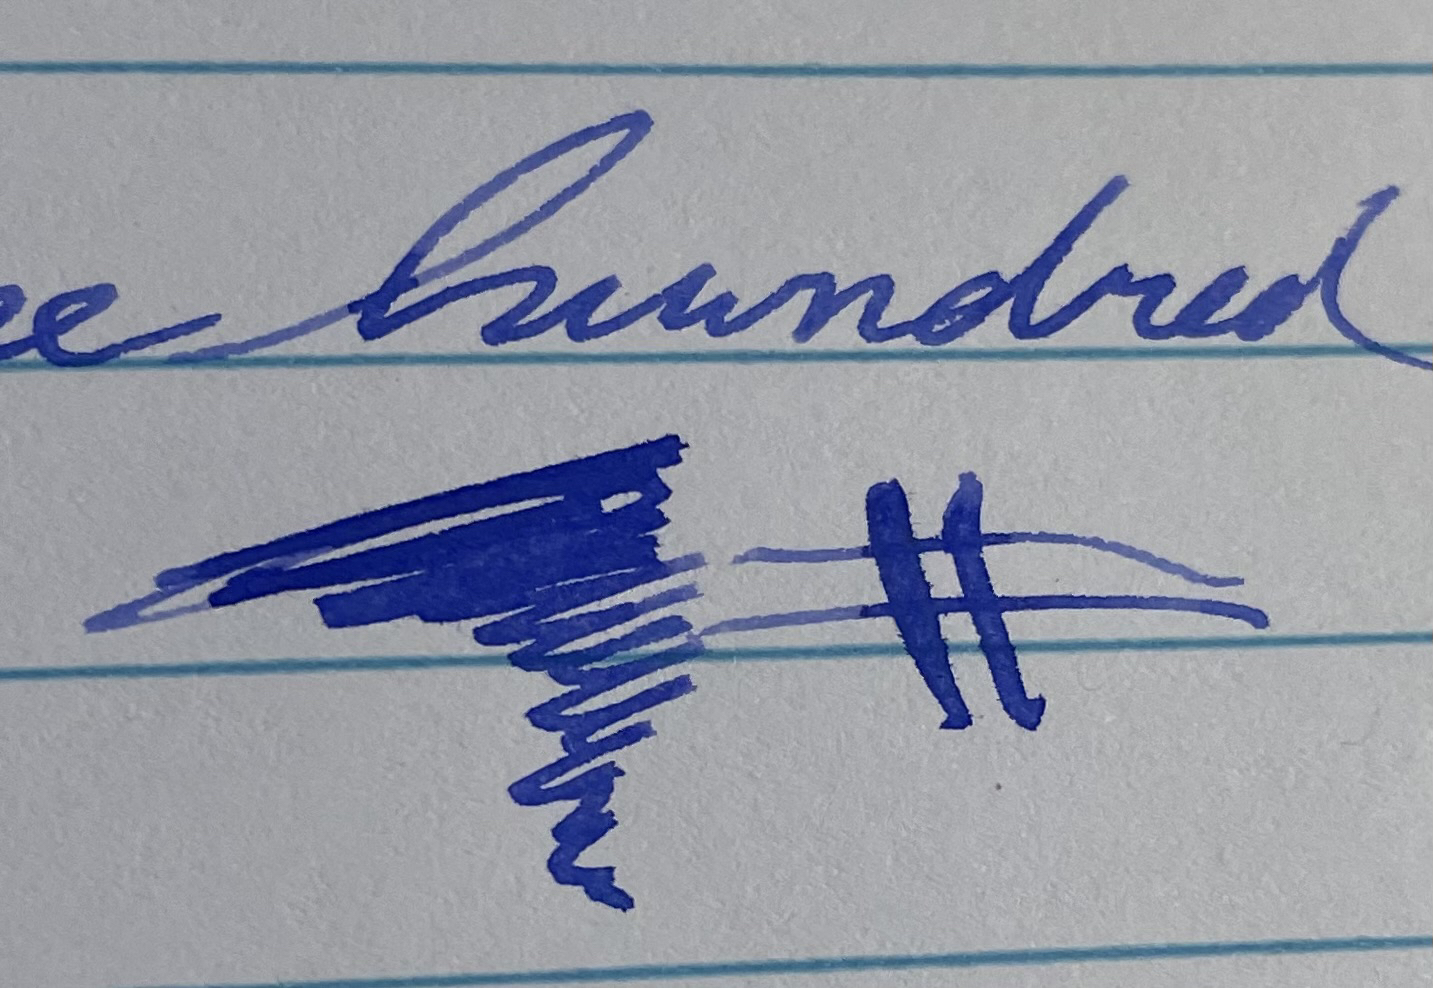 ee hundred
#